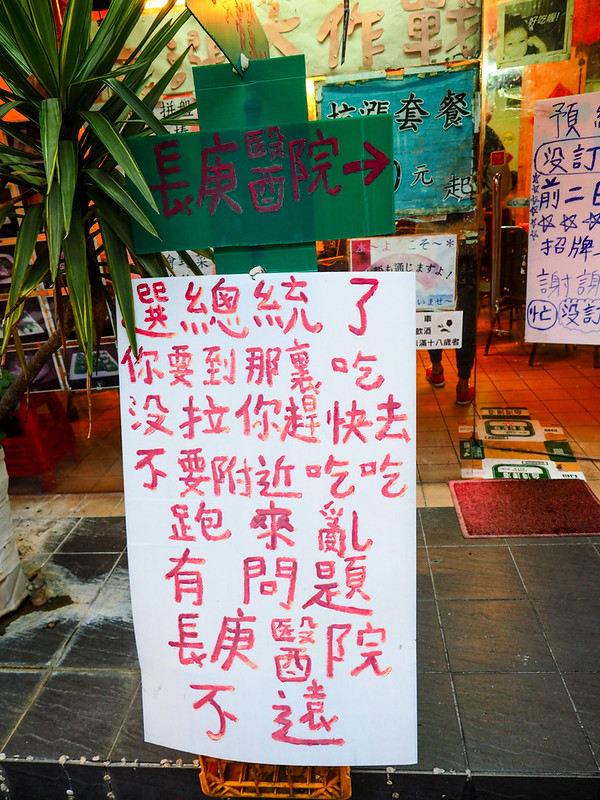 大作戰
好吃喔!
套餐
元起
長庚醫院→
預
沒訂
前二日
招牌
謝謝
忙沒訂
~よこそ~*
も通じますよ!
いませ~
車
飲酒
未滿十八歲者
選總統了
你要到那裏吃
沒拉你趕快去
不要附近吃吃
跑來亂
有問題
長庚醫院
不遠